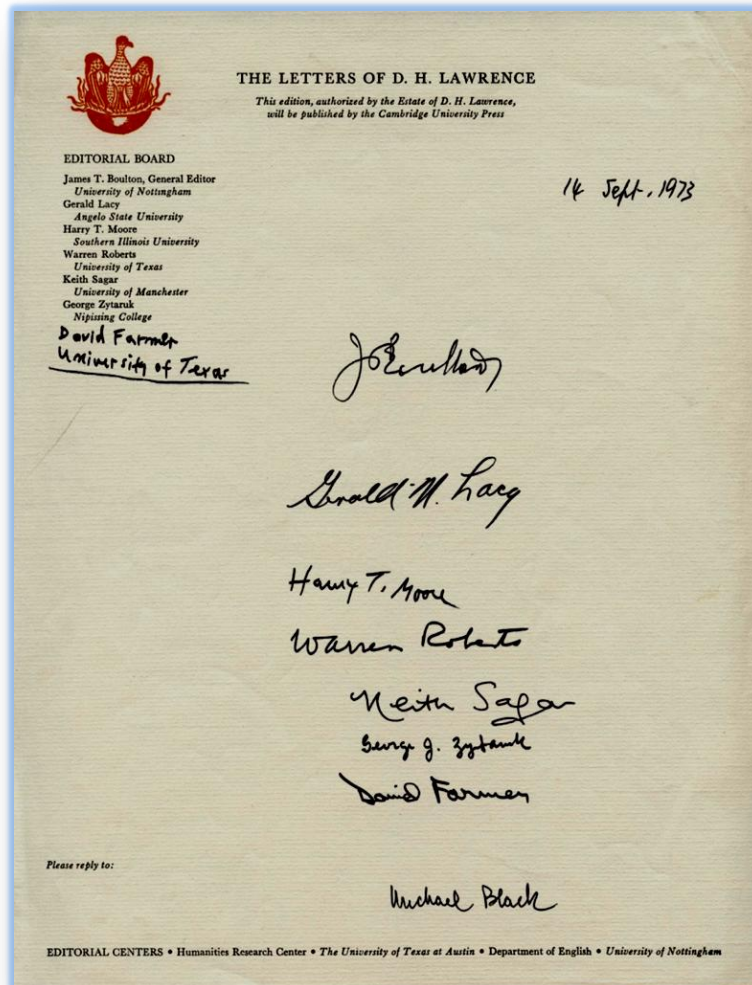 THE LETTERS OF D. H. LAWRENCE
This edition, authorized by the Estate of D. H. Lawrence,
will be published by the Cambridge University Press
EDITORIAL BOARD
James T. Boulton, General Editor
University of Nottingham
Gerald Lacy
Angelo State University
Harry T. Moore
Southern Illinois University
Warren Roberts
University of Texas
Keith Sagar
University of Manchester
George Zytaruk
Nipissing College
David Farmer
University of Texas
14 Sept. 1973
J T Boulton
Gerald M. Lacy
Harry T. Moore
Warren Roberts
Keith Sagar
George J. Zytaruk
David Farmer
Please reply to:
Michael Black
EDITORIAL CENTERS • Humanities Research Center • The University of Texas at Austin • Department of English • University of Nottingham